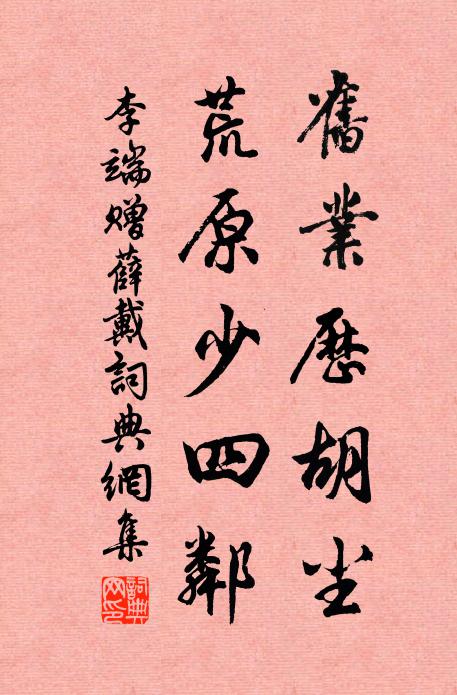 舊業歷胡尘
荒原少四鄰
李端贈薛戴詞典網集
詞典
网印